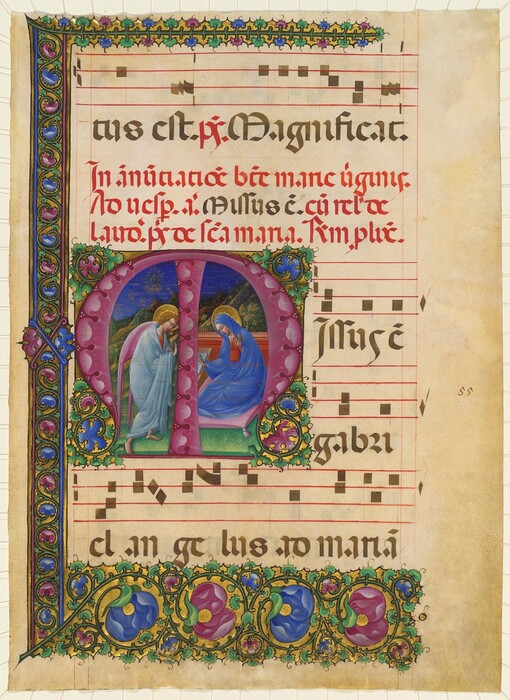 tus est. px̄. Magnificat.
In ānūtiatiōe bēte marie ūginis.
Ad uesp. a. Missus ē. cū rel' de
laud'. px̄ de sc̄a maria.
M
Issus ē
gabri
el an ge lus ad mariā
55